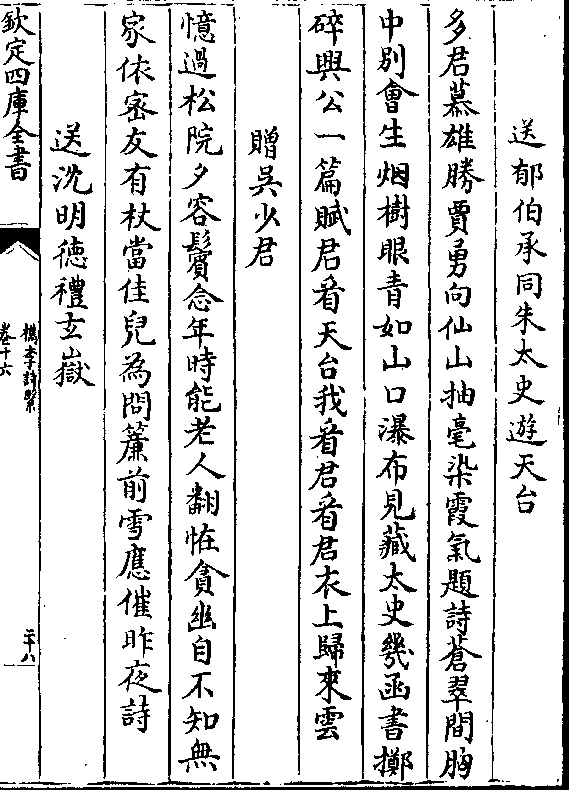 送郁伯承同朱太史遊天台
多君慕雄勝賈勇向仙山抽毫染霞氣題詩蒼翠間胸
中別會生烟樹眼青如山口瀑布見藏太史幾函書擲
碎興公一篇賦君看天台我看君看君衣上歸來雲
贈吳少君
憶過松院夕容鬢念年時能老人翻恠貪幽自不知無
家依宻友有杖當佳兒為問簾前雪應催昨夜詩
送沈明徳禮玄嶽
欽定四庫全書
檇李詩繫
卷十六
二十八